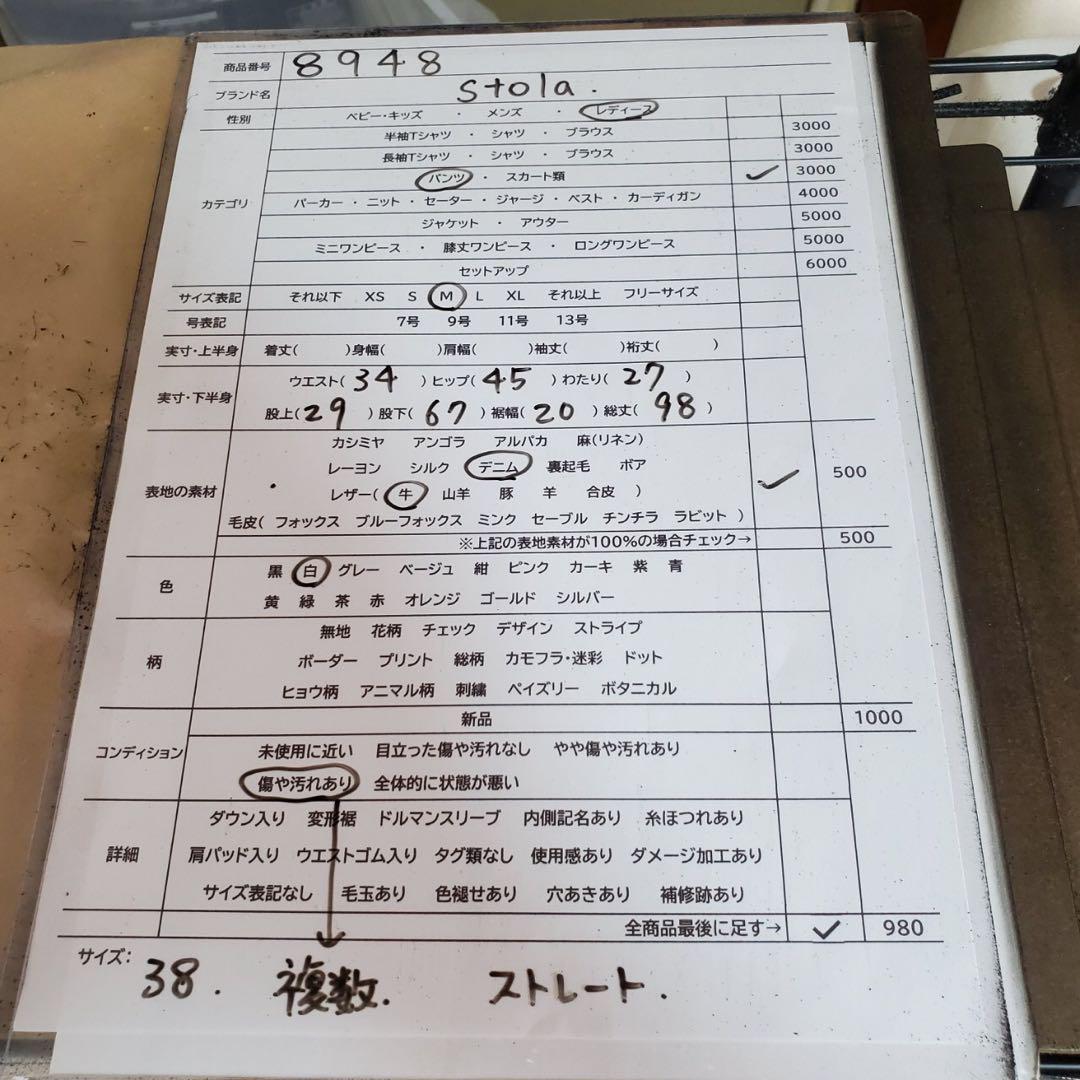 商品番号 8948
ブランド名 stola.
性別 ベビー・キッズ ・ メンズ ・ レディース
半袖Tシャツ ・ シャツ ・ ブラウス 3000
長袖Tシャツ ・ シャツ ・ ブラウス 3000
パンツ ・ スカート類 ✓ 3000
カテゴリ パーカー ・ ニット ・ セーター ・ ジャージ ・ ベスト ・ カーディガン 4000
ジャケット ・ アウター 5000
ミニワンピース ・ 膝丈ワンピース ・ ロングワンピース 5000
セットアップ 6000
サイズ表記 それ以下 XS S M L XL それ以上 フリーサイズ
号表記 7号 9号 11号 13号
実寸・上半身 着丈( )身幅( )肩幅( )袖丈( )裄丈( )
実寸・下半身 ウエスト( 34 )ヒップ( 45 )わたり( 27 )
股上( 29 )股下( 67 )裾幅( 20 )総丈( 98 )
カシミヤ アンゴラ アルパカ 麻(リネン)
レーヨン シルク デニム 裏起毛 ボア ✓ 500
表地の素材 レザー( 牛 山羊 豚 羊 合皮 )
毛皮( フォックス ブルーフォックス ミンク セーブル チンチラ ラビット )
※上記の表地素材が100%の場合チェック→ 500
色 黒 白 グレー ベージュ 紺 ピンク カーキ 紫 青
黄 緑 茶 赤 オレンジ ゴールド シルバー
無地 花柄 チェック デザイン ストライプ
柄 ボーダー プリント 総柄 カモフラ・迷彩 ドット
ヒョウ柄 アニマル柄 刺繍 ペイズリー ボタニカル
新品 1000
コンディション 未使用に近い 目立った傷や汚れなし やや傷や汚れあり
傷や汚れあり 全体的に状態が悪い
ダウン入り 変形裾 ドルマンスリーブ 内側記名あり 糸ほつれあり
詳細 肩パッド入り ウエストゴム入り タグ類なし 使用感あり ダメージ加工あり
サイズ表記なし 毛玉あり 色褪せあり 穴あきあり 補修跡あり
全商品最後に足す→ ✓ 980
サイズ:
38. 複数. ストレート.